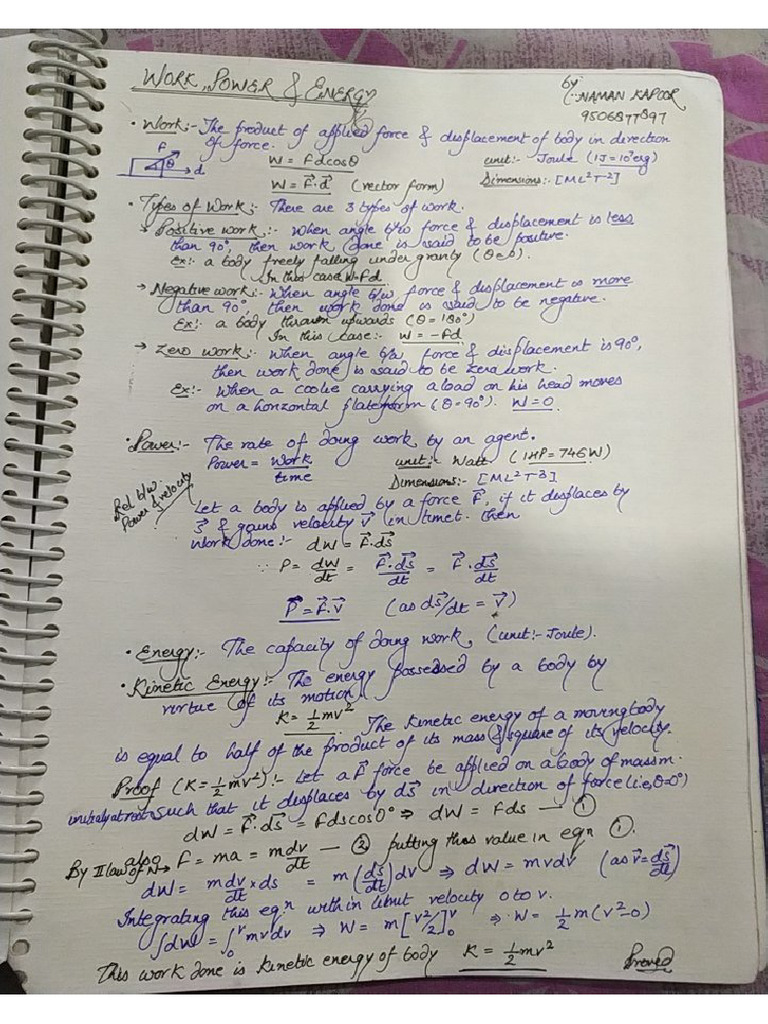 WORK, POWER & ENERGY
by:
NAMAN KAPOOR
9506877897
• Work:- The product of applied force & displacement of body in direction
of force.
F
θ
d
W = Fdcosθ
unit:- Joule (1J = 10⁷erg)
W = F⃗.d⃗ (vector form)
Dimensions:- [ML²T⁻²]
• Types of Work:- There are 3 types of work.
→ Positive work:- When angle b/w force & displacement is less
than 90°, then work done is said to be positive.
Ex:- a body freely falling under gravity (θ=0°).
In this case W=Fd
→ Negative work:- When angle b/w force & displacement is more
than 90°, then work done is said to be negative.
Ex:- a body thrown upwards (θ=180°)
In this case:- W = -Fd
→ Zero work:- When angle b/w force & displacement is 90°,
then work done is said to be zero work.
Ex:- When a coolie carrying a load on his head moves
on a horizontal plateform (θ=90°). W=0
• Power:- The rate of doing work by an agent.
Power = work/time
unit:- Watt (1HP = 746W)
Dimensions:- [ML²T⁻³]
Rel. b/w.
Power & velocity
Let a body is applied by a force F⃗, if it displaces by
s⃗ & gains velocity v⃗ in time t. Then
Work done:- dW = F⃗.ds⃗
∵ P = dW/dt = F⃗.ds⃗/dt = F⃗.ds⃗/dt
P = F⃗.v⃗ (as ds⃗/dt = v⃗)
• Energy:- The capacity of doing work, (unit:- Joule).
• Kinetic Energy:- The energy possessed by a body by
virtue of its motion.
K = 1/2 mv². The kinetic energy of a moving body
is equal to half of the product of its mass & square of its velocity.
Proof (K = 1/2 mv²):- Let a F⃗ force be applied on a body of mass m.
initially at rest such that it displaces by ds⃗ in direction of force (i.e, θ=0°)
dW = F⃗.ds⃗ = Fdscos0° ⇒ dW = Fds — ①
also
By II law of N→ F = ma = m dv/dt — ② putting this value in eqn ①.
dW = m dv/dt × ds = m(ds/dt)dv ⇒ dW = mvdv (as v⃗ = ds⃗/dt)
Integrating this eq.n within limit velocity 0 to v.
∫dW = ∫₀ᵛ mvdv ⇒ W = m[v²/2]₀ᵛ ⇒ W = 1/2 m(v²-0)
This work done is kinetic energy of body K = 1/2 mv² Proved